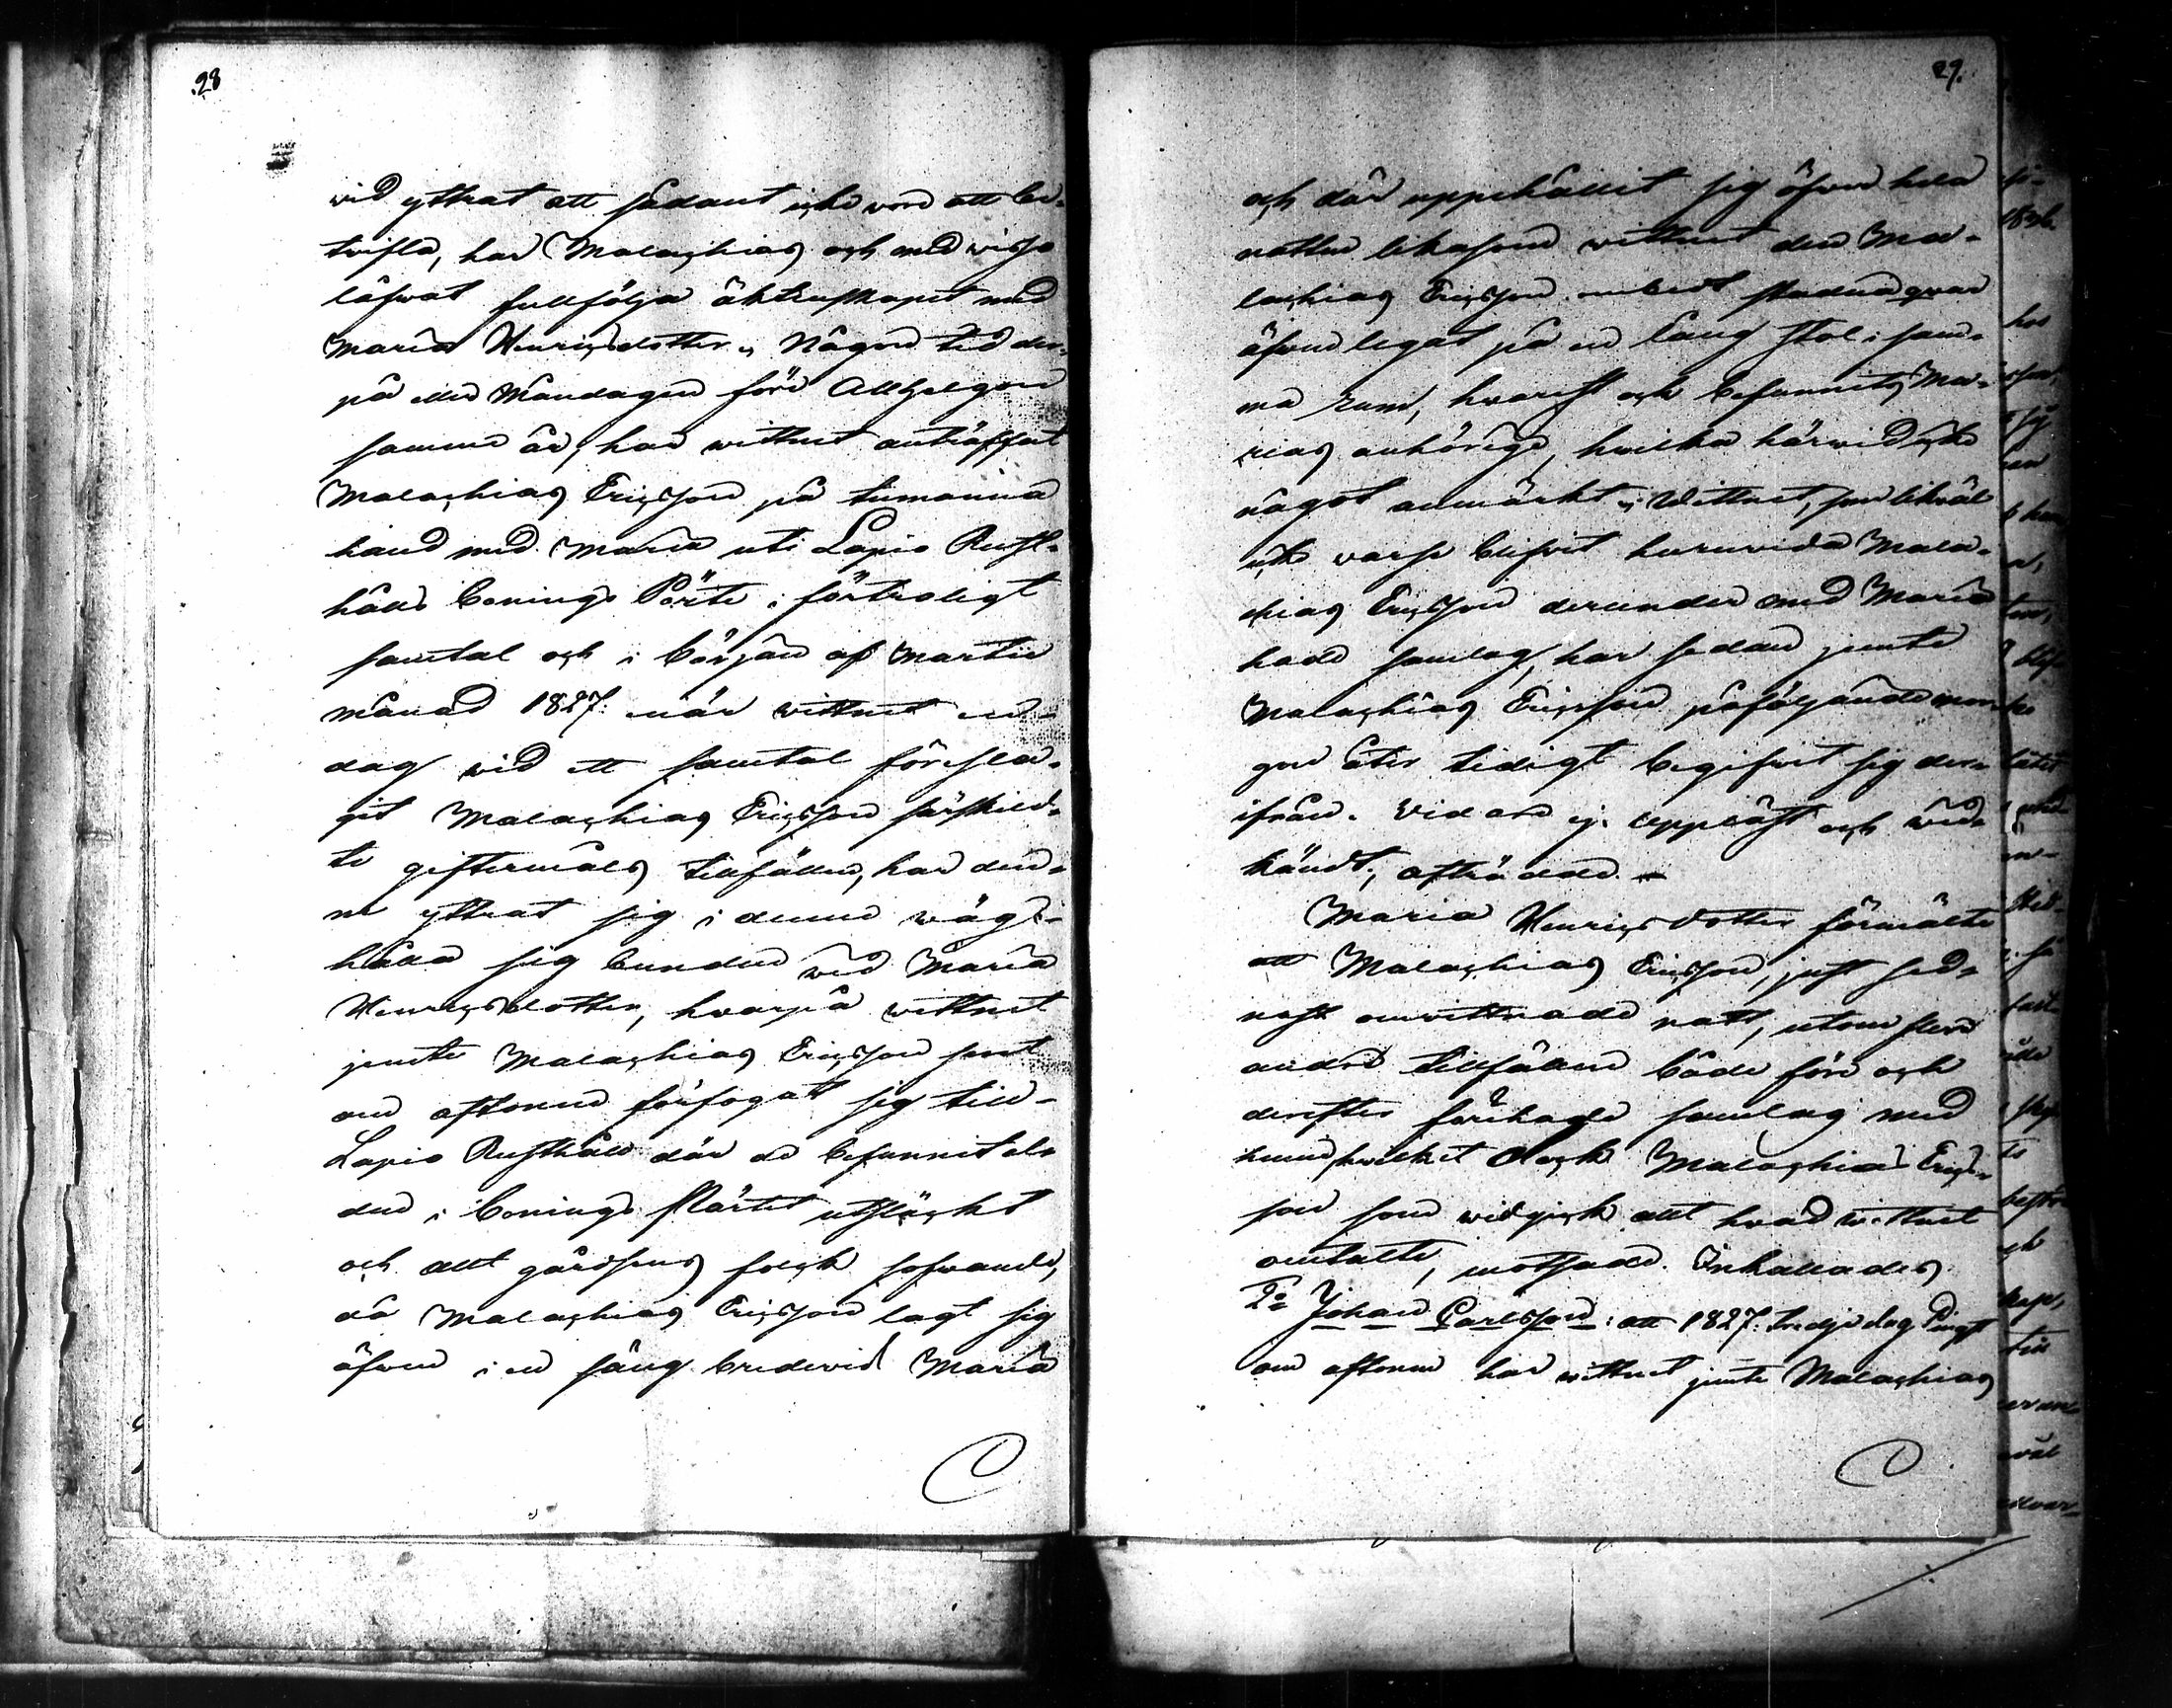 28
wid yttrat att sådant icke wore att be-
twifla, har Malachias och med wisso
låfwat fullfölja äktenskapet med
Maria Henricsdotter. Någon tid der-
på eller Måndagen före Allhelgon
samma år, har wittnet anträffat
Malachias Ericsson på tumanna
hand med Maria uti Lapio Rust-
hålls bonings Pörte i förtroligt
samtal och i början af Martii
månad 1827: när wittnet en
dag wid ett samtal föresla-
git Malachias Ericsson särskild-
te giftermåls tillfällen, har den-
ne yttrat sig i denne wäg
hålla sig bunden wid Maria
Henricsdotter, hwarpå wittnet
jemte Malachias Ericsson sent
om aftonen förfogat sig till
Lapio Rusthåll där de befunnit el-
den i bonings Pörtet utsläckt
och allt gårdsens folck sofwande,
då Malachias Ericsson lagt sig
äfwen i en säng bredewid Maria
29.
och där uppehållit sig öfwer hela
natten likasom wittnet den Ma-
lachias Ericsson ombedt stadna qwar
äfwen legat på en lång stol i sam-
ma rum, hwarest och befunnits Ma-
rias anhörige, hwilka härwid icke
något anmärkt. Wittnet, som likwäl
icke warse blifwit huruwida Mala-
chias Ericsson derunder med Maria
hade samlag, har sedan jemte
Malachias Ericsson påföljande mor-
gon åter tidigt begifwit sig der-
ifrån. Widare ej. Uppläst och wid-
kändt, afträdde.
Maria Henricsdotter förmälte
att Malachias Ericsson, just sed-
nast omwittnade natt, utom flere
andre tillfällen både före och
derefter förehade samlag med
henne, hwilket dock Malachias Erics-
son som widgick allt hwad wittnet
omtalte, motsade. Inkallades
2o Johan Carlsson: att 1827: tredje dag Pingst
om aftonen har wittnet jemte Malachias